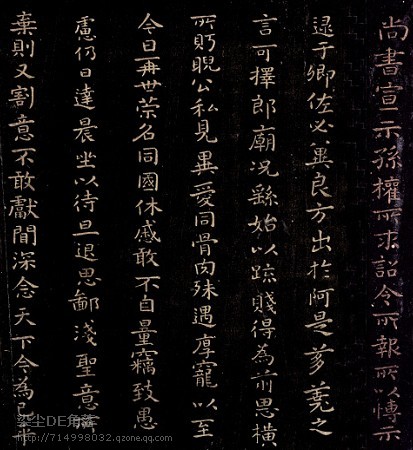 尚書宣示孫權所求詔令所報所以博示
逮于卿佐必冀良方出於阿是芻蕘之
言可擇郎廟況繇始以疏賤得為前恩橫
所盻睨公私見異愛同骨肉殊遇厚寵以至
今日再世榮名同國休慼敢不自量竊致愚
慮仍日達晨坐以待旦退思鄙淺聖意
棄則又割意不敢獻聞深念天下今為已平
尘DE角落
http://714998032.qzone.qq.com